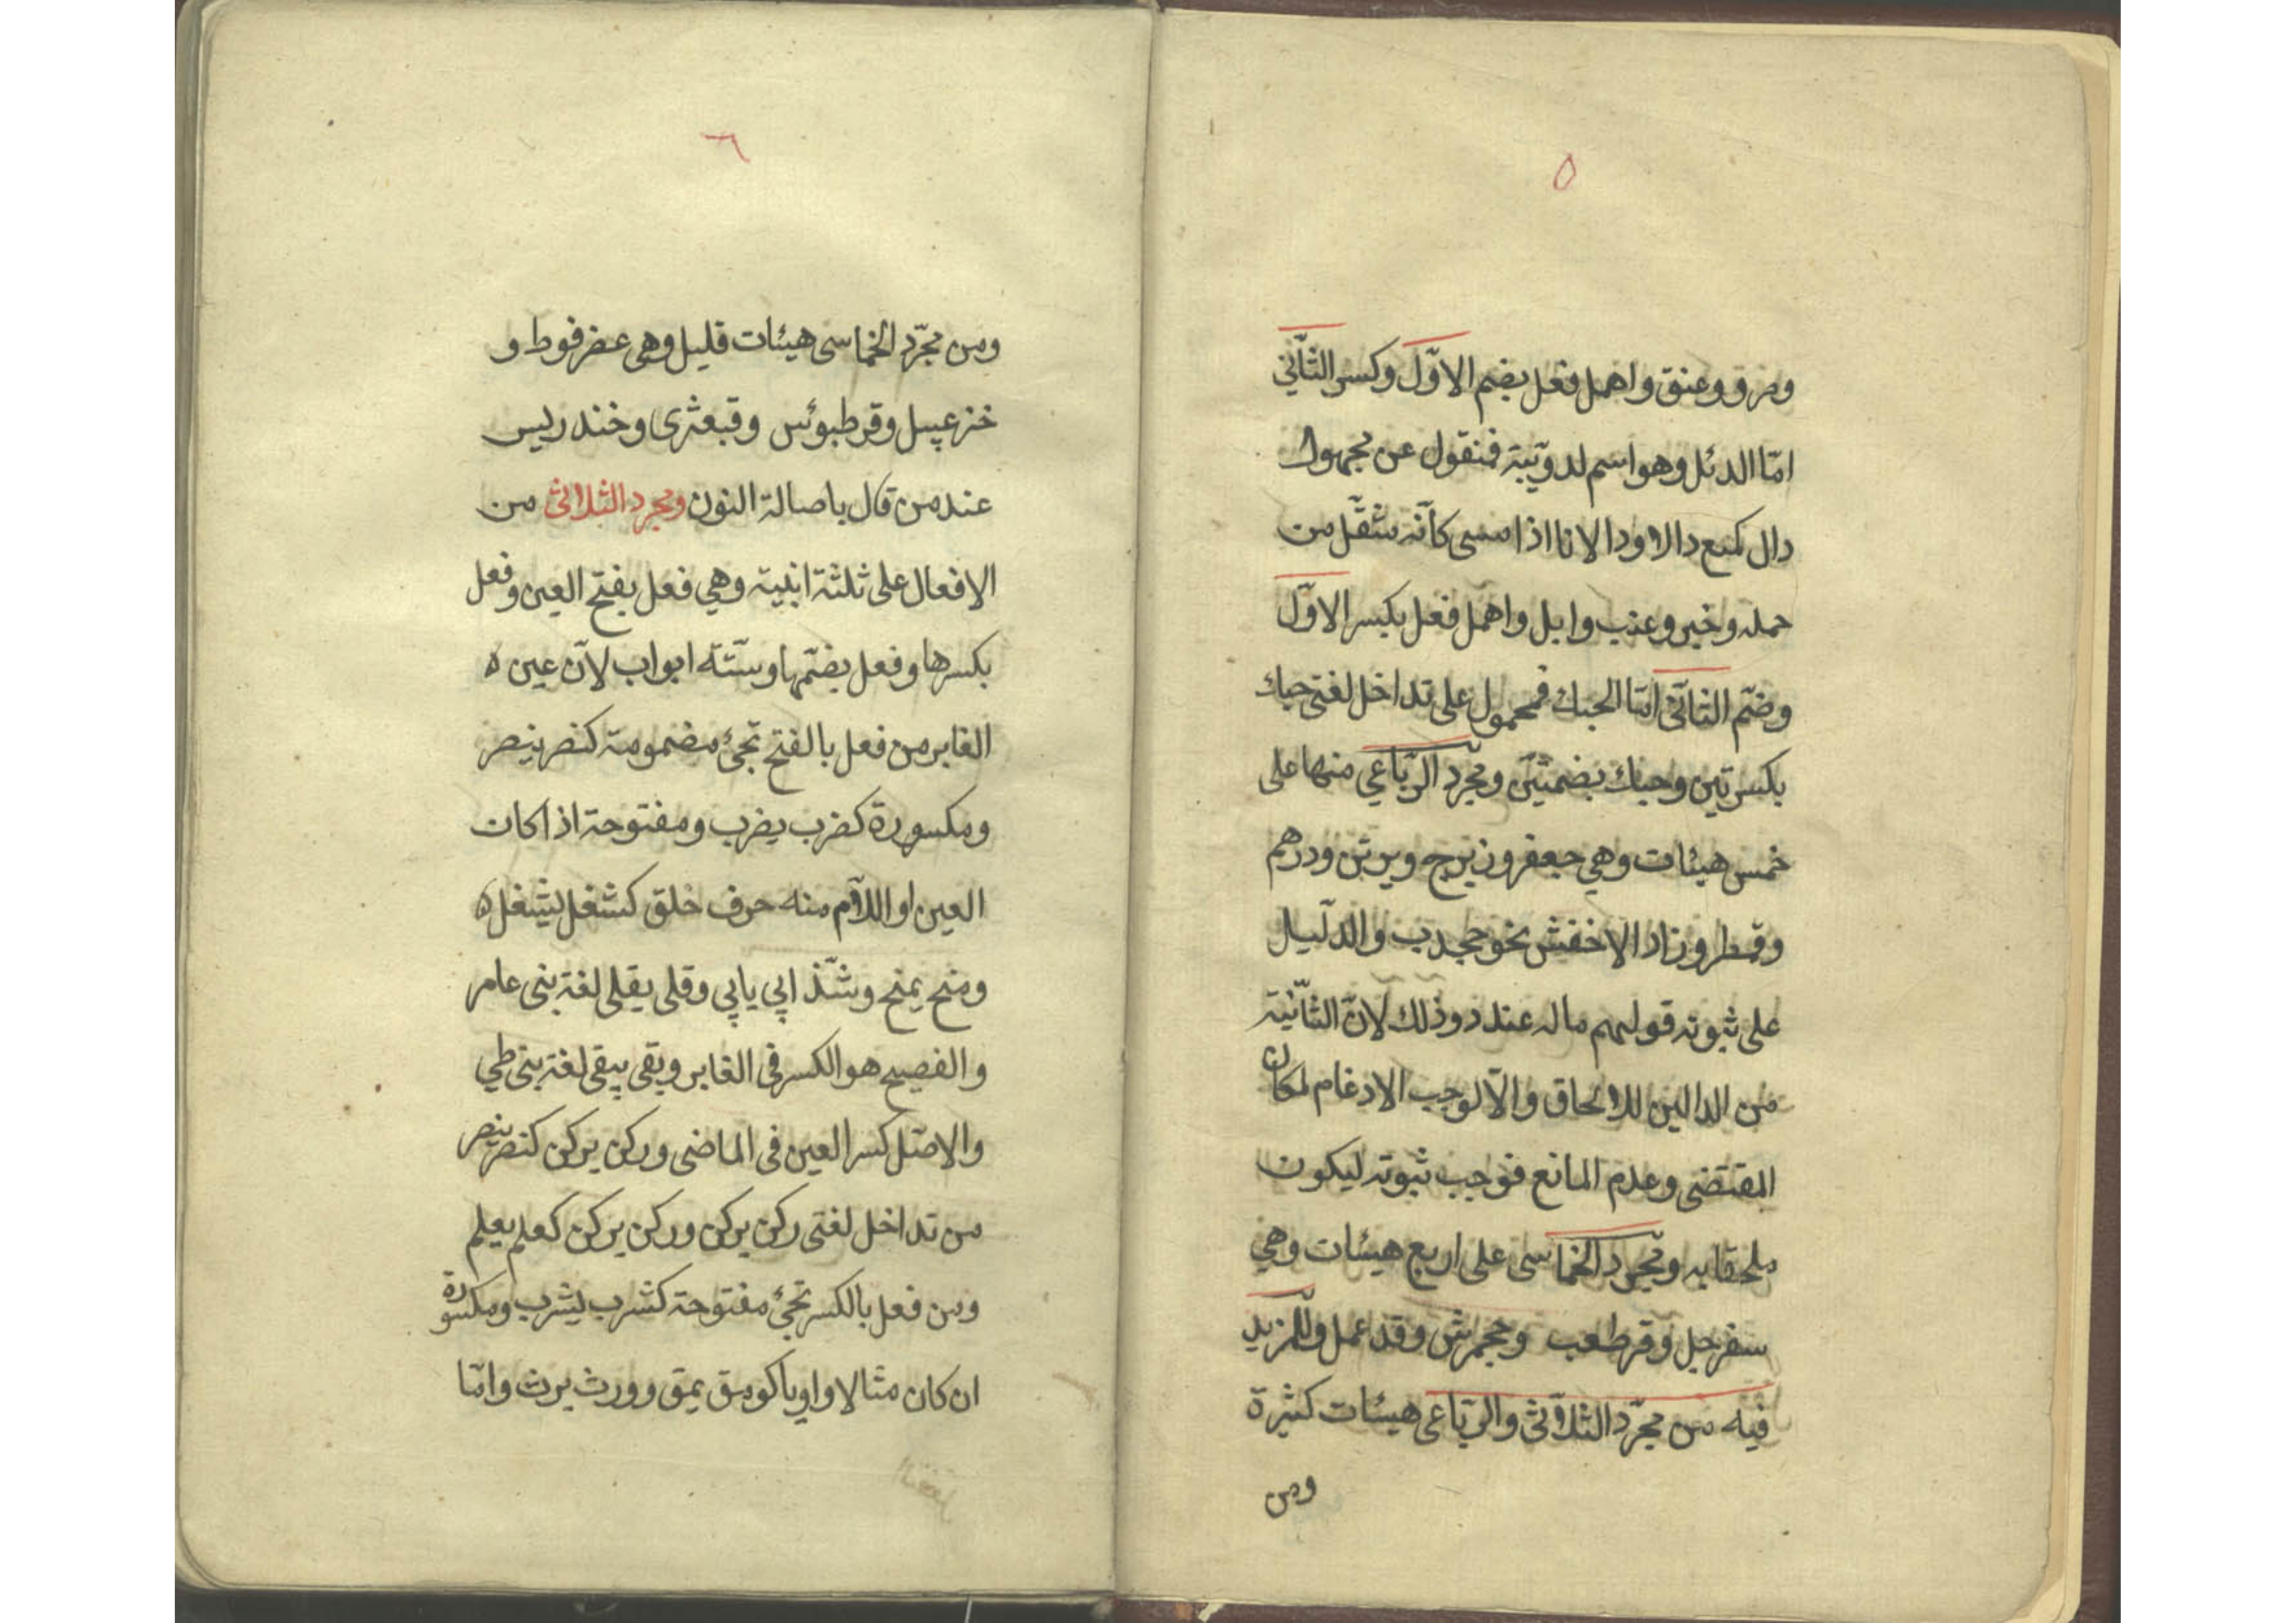 ٥
وصرو وعنق واهمل فعل بضم الاوّل وكسر الثّاني
امّا الدئل وهو اسم لدويّبة فنقول عن مجهول
دال كمنع دالا ودالانا اذا مسى كانّه مثقّل من
حمله وخبر وعنب وابل واهمل فعل بكسر الاوّل
وضمّ الثاني امّا الحبك فمحمول على تداخل لغتى حبك
بكسرتين وحبك بضمتين ومجرّد الرّباعي منها على
خمس هيئات وهي جعفر وزبرج وبرثن ودرهم
وقمطر وزاد الاخفش نحو جحدب والدّليل
على ثبوته قولهم ماله عندد وذلك لانّ الثّانية
من الدالين للالحاق والّا لوجب الادغام لمكان
المقتضى وعدم المانع فوجب ثبوته ليكون
ملحقا به ومجرّد الخماسى على اربع هيئات وهي
سفرجل وقرطعب وجحمرش وقد عمل وللمزيد
فيه من مجرّد الثلاثى والرّباعى هيئات كثيرة
ومن
٦
ومن مجرّد الخماسى هيئات قليل وهي عضرفوط و
خزعبيل وقرطبوئس وقبعثرى وخندريس
عند من قال باصالة النون ومجرد الثلاثى من
الافعال على ثلثة ابنية وهي فعل بفتح العين وفعل
بكسرها وفعل بضمّها وستّة ابواب لانّ عين ه
الغابر من فعل بالفتح تجئ مضمومة كنصر ينصر
ومكسورة كضرب يضرب ومفتوحة اذا كان
العين او اللّام منه حرف خلق كشغل يشغل ه
ومنح يمنح وشّذ ابي يابي وقلى يقلى لغة بنى عامر
والفصيح هو الكسر فى الغابر وبقى يبقى لغة بنى طي
والاصل كسر العين فى الماضى وركن يركن كنصر ينصر
من تداخل لغتى ركن يركن وركن يركن كعلم يعلم
ومن فعل بالكسر تجئ مفتوحة كشرب يشرب ومكسورة
ان كان مثالا واويا كومق يمق وورث يرث وامّا